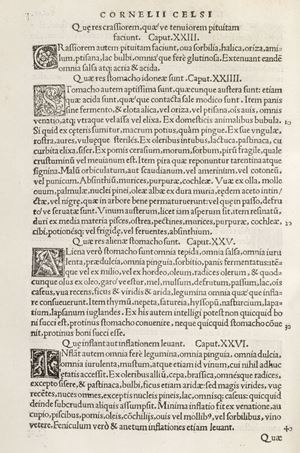 CORNELII CELSI
Quæ res crassiorem, quæ'ue tenuiorem pituitam
faciunt. Caput. XXIII.
CRassiorem autem pituitam faciunt, oua sorbilia, halica, oriza, ami-
lum, ptisana, lac bulbi, omniaq; quæ ferè glutinosa. Extenuant eandẽ
omnia salsa atq; acria & acida.
Quæ res stomacho idoneæ sunt. Caput. XXIIII.
STomacho autem aptissima sunt, quæcunque austera sunt: etiam
quæ acida sunt, quæ'que contacta sale modico sunt. Item panis
sine fermento, & elota alica, uel oriza, uel ptisana, ois auis, omnis
uenatio, atq; utraque uel assa uel elixa. Ex domesticis animalibus bubula.
Si quid ex cęteris sumitur, macrum potius, quàm pingue. Ex sue ungulæ,
rostra, aures, uuluæque steriles. Ex oleribus intubus, lactuca, pastinaca, cu-
curbita elixa, siser. Ex pomis cerasium, morum, sorbum, pirũ fragile, quale
crustuminũ uel meuianum est. Item pira quæ reponuntur tarentina atque
signina. Malũ orbiculatum, aut scaudianum, uel amerinum, uel cotoneũ,
uel punicum. Absinthiũ, murices, purpuræ, cochleæ. Vuæ ex olla, mollia
ouum, palmulæ, nuclei pinei, oleæ albæ ex dura muria, eędem aceto intin/
ctæ, uel nigrę, quæ in arbore bene permaturuerunt: uel quę in passo, defru
to'ue seruatæ sunt. Vinum austerum, licet iam asperum sit, item resinatũ,
duri ex media materia pisces, ostrea, pectines, murices, purpuræ, cochleæ,
cibi, potiónesq; uel frigidę, uel feruentes, absinthium.
Quæ res alienæ stomacho sunt. Caput. XXV.
ALiena uerò stomacho sunt omnia tepida, omnia salsa, omnia iura
lenta, prædulcia, omnia pinguia, sorbitio, panis fermentatus: itẽ-
que uel ex milio, uel ex hordeo, oleum, radices olerum, & quod-
cunque olus ex oleo, garo'ue estur, mel, mulsum, defrutum, passum, lac, ois
caseus, uua recens, ficus & uiridis & arida, legumina omnia quæ'que inflare
consueuerunt. Item thymũ, nepeta, satureia, hyssopũ, nasturcium, lapa-
tium, lapsanum iuglandes. Ex his autem intelligi potest non quicquid bo
ni succi est, protinus stomacho conuenire, neque quicquid stomacho cõue 30
nit, protinus boni succi esse.
Quę inflant aut inflationem leuant. Caput. XXVI.
INflat autem omnia ferè legumina, omnia pinguia, omnia dulcia,
omnia iurulenta, mustum, atque etiam id uinum, cui nihil adhuc
ętatis accessit. Ex oleribus alliũ, cępa, brassica, omnésque radices,
excepto sisere, & pastinaca, bulbi, ficus etiam aridæ: sed magis uirides, uuę
recẽtes, nuces omnes, exceptis nucleis pineis, lac, omnisq; caseus: quicquid
deinde subcrudum aliquis assumpsit. Minima inflatio fit ex uenatione, au
cupio, piscibus, pomis, oleis, cõchiliis, ouis uel mollib, uel sorbilibus, uino
uetere. Feniculum uerò & anetum inflationes etiam leuant. 40
Quæ